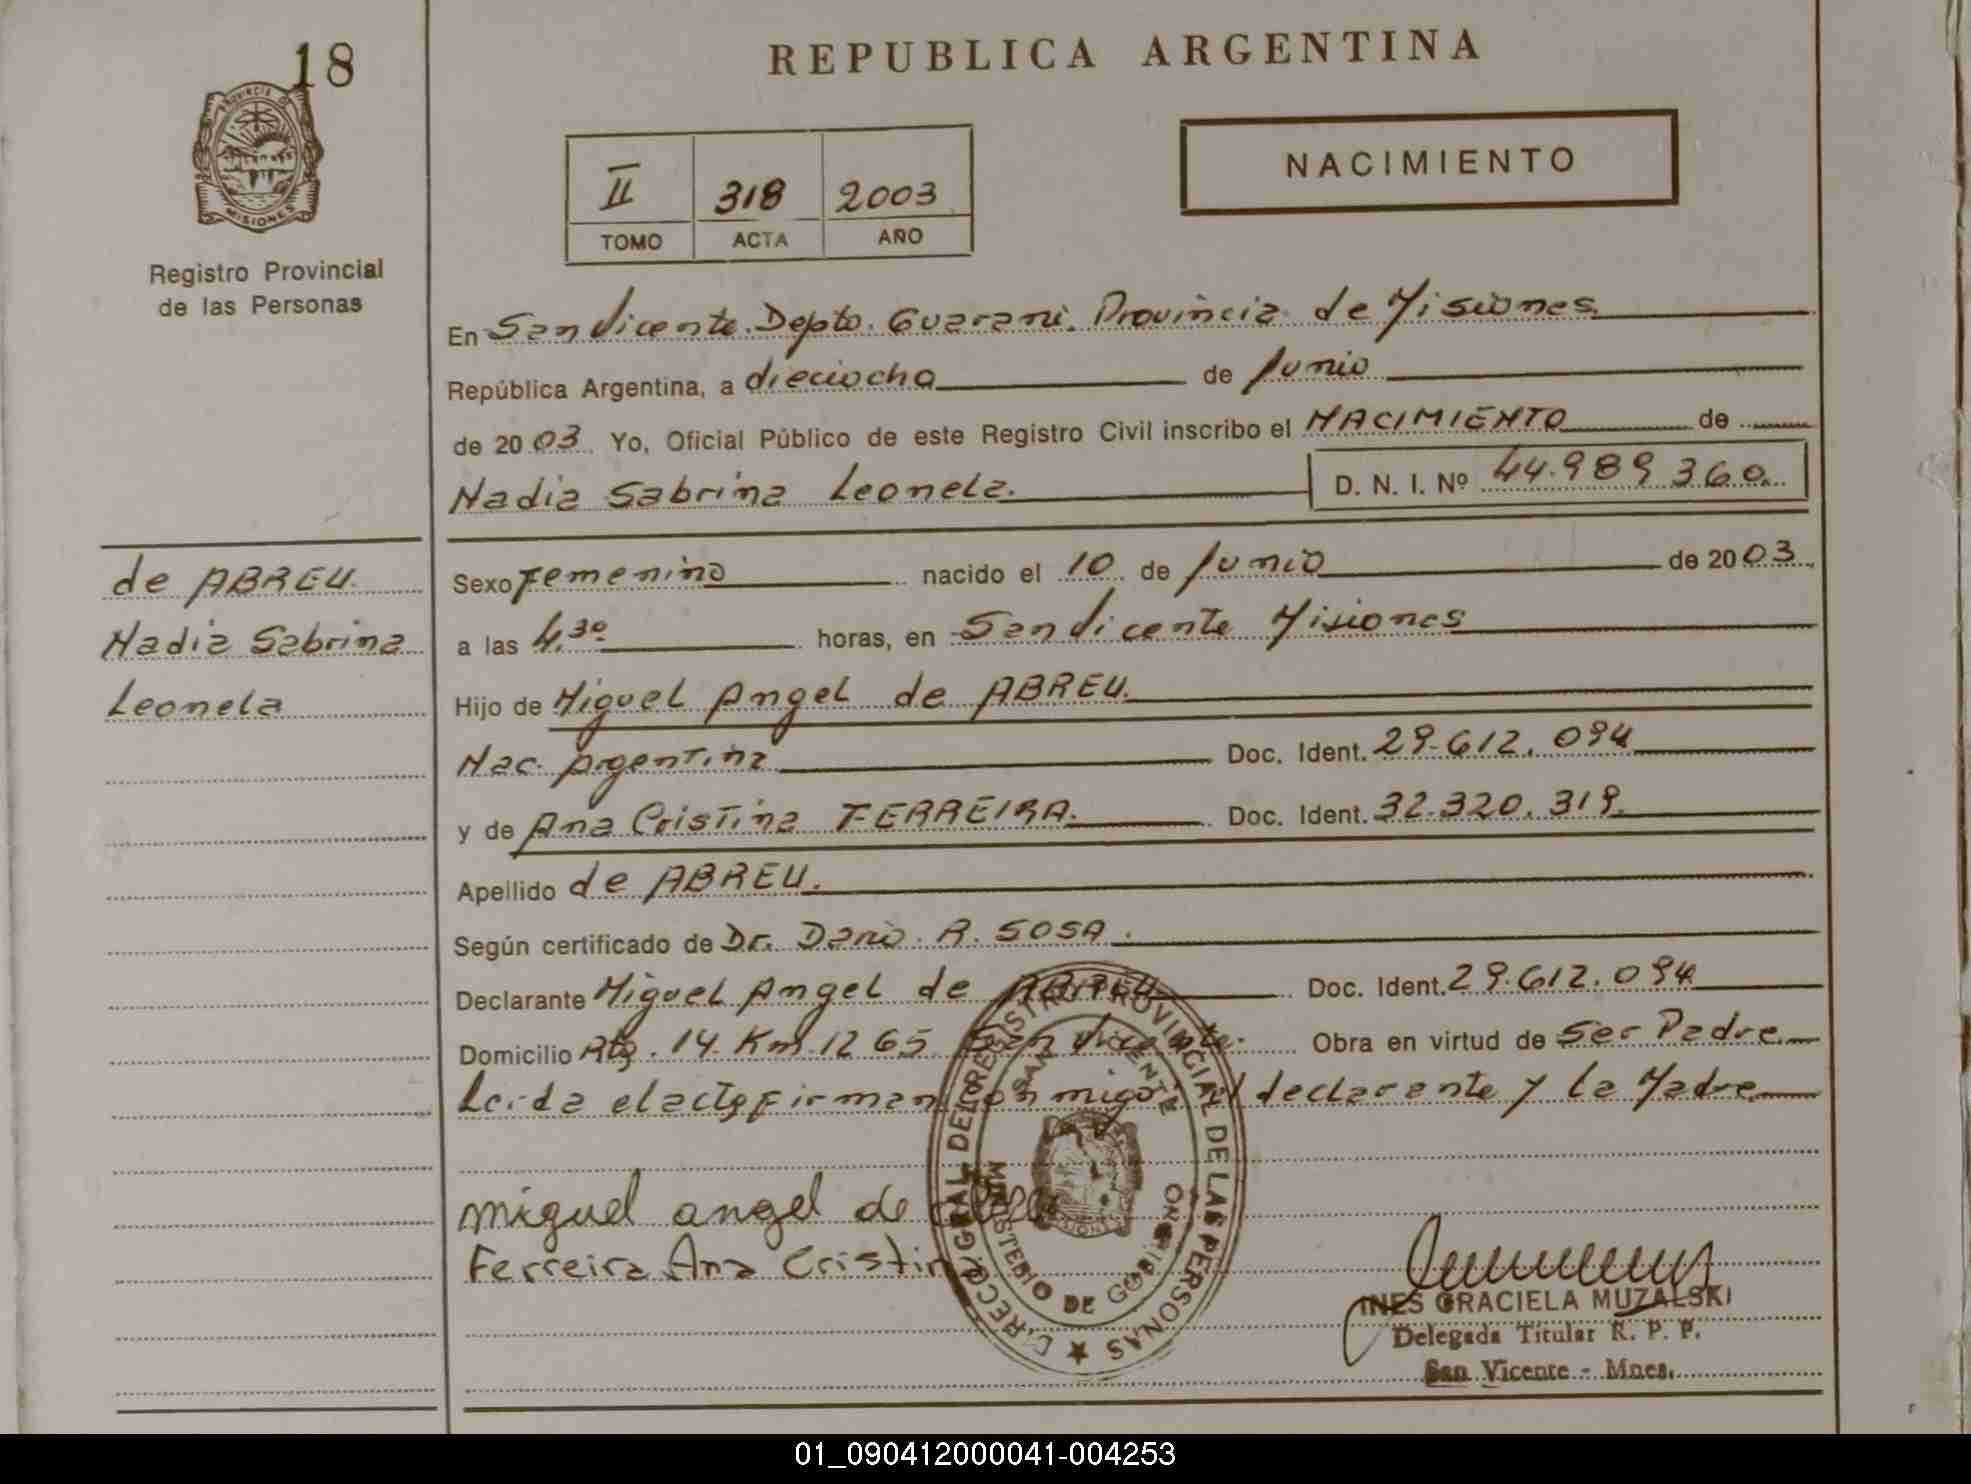 18
REPUBLICA ARGENTINA
PROVINCIA DE
MISIONES
Registro Provincial
de las Personas
II 318 2003
TOMO ACTA AÑO
NACIMIENTO
En San Vicente. Depto. Guaraní. Provincia de Misiones
República Argentina, a dieciocho de Junio
de 2003. Yo, Oficial Público de este Registro Civil inscribo el NACIMIENTO de
Nadia Sabrina Leonela. D. N. I. Nº 44.989.360.
de ABREU.
Nadia Sabrina
Leonela
Sexo Femenino nacido el 10 de Junio de 2003.
a las 4.30 horas, en San Vicente Misiones
Hijo de Miguel Angel de ABREU.
Nac. Argentina Doc. Ident. 29.612.094
y de Ana Cristina FERREIRA. Doc. Ident. 32.320.319.
Apellido de ABREU.
Según certificado de Dr. Dario. R. SOSA.
Declarante Miguel Angel de ABREU Doc. Ident. 29.612.094
Domicilio Rta. 14. Km. 1265 San Vicente. Obra en virtud de Ser Padre
Leida el acta firman conmigo el declarante y la Madre
miguel angel de
Ferreira Ana Cristina
D. REC. GRAL DEL REGISTRO PROVINCIAL DE LAS PERSONAS
SAN VICENTE
MINISTERIO DE GOBIERNO
INES GRACIELA MUZALSKI
Delegada Titular R. P. P.
San Vicente - Mnes.
01_090412000041-004253